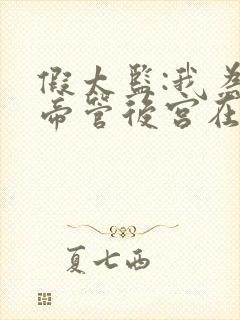 假太监:我为
帝管後宫在
夏七西